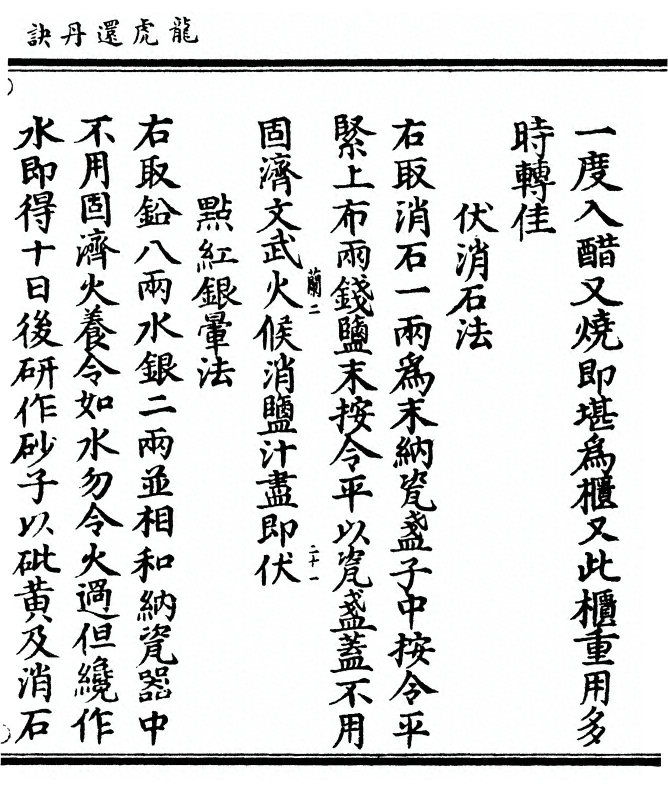 龍虎還丹訣
一度入醋又燒即堪為櫃又此櫃重用多
時轉佳
伏消石法
右取消石一兩為末納瓷盞子中按令平
緊上布兩錢鹽末按令平以瓷盞蓋不用
蘭二
二十一
固濟文武火候消鹽汁盡即伏
點紅銀暈法
右取鉛八兩水銀二兩並相和納瓷器中
不用固濟火養令如水勿令火過但纔作
水即得十日後研作砂子以砒黃及消石